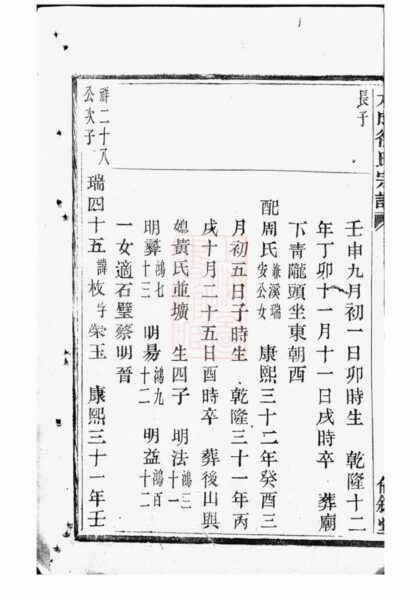 徐氏宗譜
長子
壬申九月初一日卯時生 乾隆十二
年丁卯十一月十一日戌時卒 葬廟
下青隴頭坐東朝酉
配周氏兼溪瑞安公女 康熙三十二年癸酉三
月初五日子時生 乾隆三十一年丙
戌十月二十五日酉時卒 葬後山與
媳黃氏並壙 生四子 明法鴻三十一
明彝鴻七十三 明易鴻九十二 明益鴻百十二
一女適石璧蔡明晉
祥二十八公次子
瑞四十五諱枚字榮玉 康熙三十一年壬